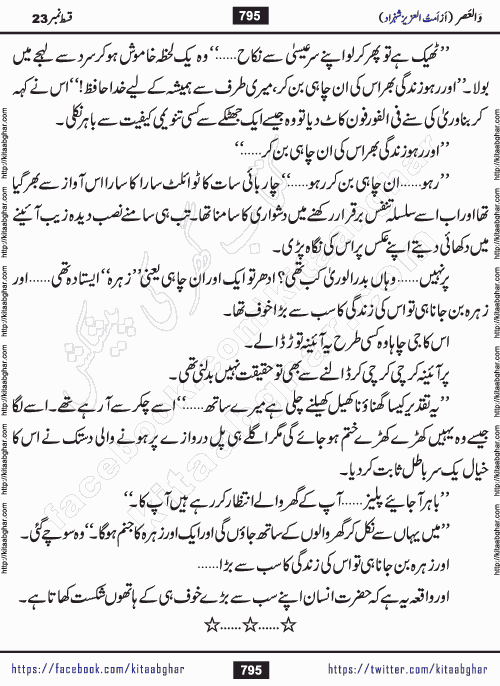 وَالعَصر (از اَمتُ العزیز شہزاد) 795 قسط نمبر 23
’’ٹھیک ہے تو پھر کرلو اپنے سر عیسیٰ سے نکاح......‘‘ وہ یک لحظہ خاموش ہوکر سرد سے لہجے میں
بولا۔ ’’اور رہو زندگی بھر اس کی ان چاہی بن کر، میری طرف سے ہمیشہ کے لیے خدا حافظ!‘‘ اس نے کہہ
کر بنا ورئ کی سنے فی الفور فون کاٹ دیا تو وہ جیسے ایک جھٹکے سے کسی تنویمی کیفیت سے باہر نکلی۔
’’اور رہو زندگی بھر اس کی ان چاہی بن کر......‘‘
’’رہو......ان چاہی بن کر رہو......‘‘ چار بائی سات کا ٹوائلٹ سارا کا سارا اس آواز سے بھر گیا
تھا اور اب اسے سلسلہ تنفس برقرار رکھنے میں دشواری کا سامنا تھا۔ تب ہی سامنے نصب دیدہ زیب آئینے
میں دکھائی دیتے اپنے عکس پر اس کی نگاہ پڑی۔
پر نہیں...... وہاں بدرالوریٰ کب تھی؟ ادھر تو ایک اور ان چاہی یعنی ’’زہرہ‘‘ ایستادہ تھی......اور
زہرہ بن جانا ہی تو اس کی زندگی کا سب سے بڑا خوف تھا۔
اس کا جی چاہا وہ کسی طرح یہ آئینہ توڑ ڈالے۔
پر آئینہ کرچی کرچی کر ڈالنے سے بھی تو حقیقت نہیں بدلنی تھی۔
’’یہ تقدیر کیسا گھناؤنا کھیل کھیلنے چلی ہے میرے ساتھ......‘‘ اسے چکر سے آرہے تھے۔ اسے لگا
جیسے وہ یہیں کھڑے کھڑے ختم ہو جائے گی مگر اگلے ہی پل دروازے پر ہونے والی دستک نے اس کا
خیال یک سر باطل ثابت کر دیا۔
’’باہر آجائیے پلیز...... آپ کے گھر والے انتظار کر رہے ہیں آپ کا۔‘‘
’’میں یہاں سے نکل کر گھر والوں کے ساتھ جاؤں گی اور ایک اور زہرہ کا جنم ہوگا۔‘‘ وہ سوچے گئی۔
اور زہرہ بن جانا ہی تو اس کی زندگی کا سب سے بڑا......
اور واقعہ یہ ہے کہ حضرت انسان اپنے سب سے بڑے خوف ہی کے ہاتھوں شکست کھاتا ہے۔
☆......☆......☆
https://facebook.com/kitaabghar 795 https://twitter.com/kitaabghar
http://kitaabghar.com http://kitaabghar.com http://kitaabghar.com http://kitaabghar.com